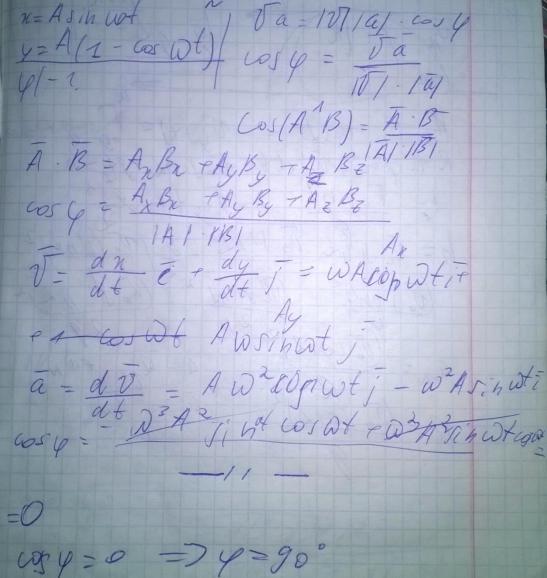 x = A sin ωt
y = A(1 - cos ωt)
φ - ?
v̄ ā = |v̄| |ā| · cos φ
cos φ = v̄ ā / |v̄| · |ā|
cos(A^B) = Ā · B̄ / |A| |B|
Ā · B̄ = AxBx + AyBy + Az Bz
cos φ = AxBx + AyBy + AzBz / |A| · |B|
Ax
v̄ = dx/dt i̅ + dy/dt j̅ = ωA cos ωt i̅ +
Ay
+ Aω sin ωt j̅
ā = dv̄/dt = Aω² cos ωt j̅ - ω²A sin ωt i̅
cos φ = - ω³A² sin ωt cos ωt + ω³A² sin ωt cos ωt / — // — =
= 0
cos φ = 0 ⇒ φ = 90°